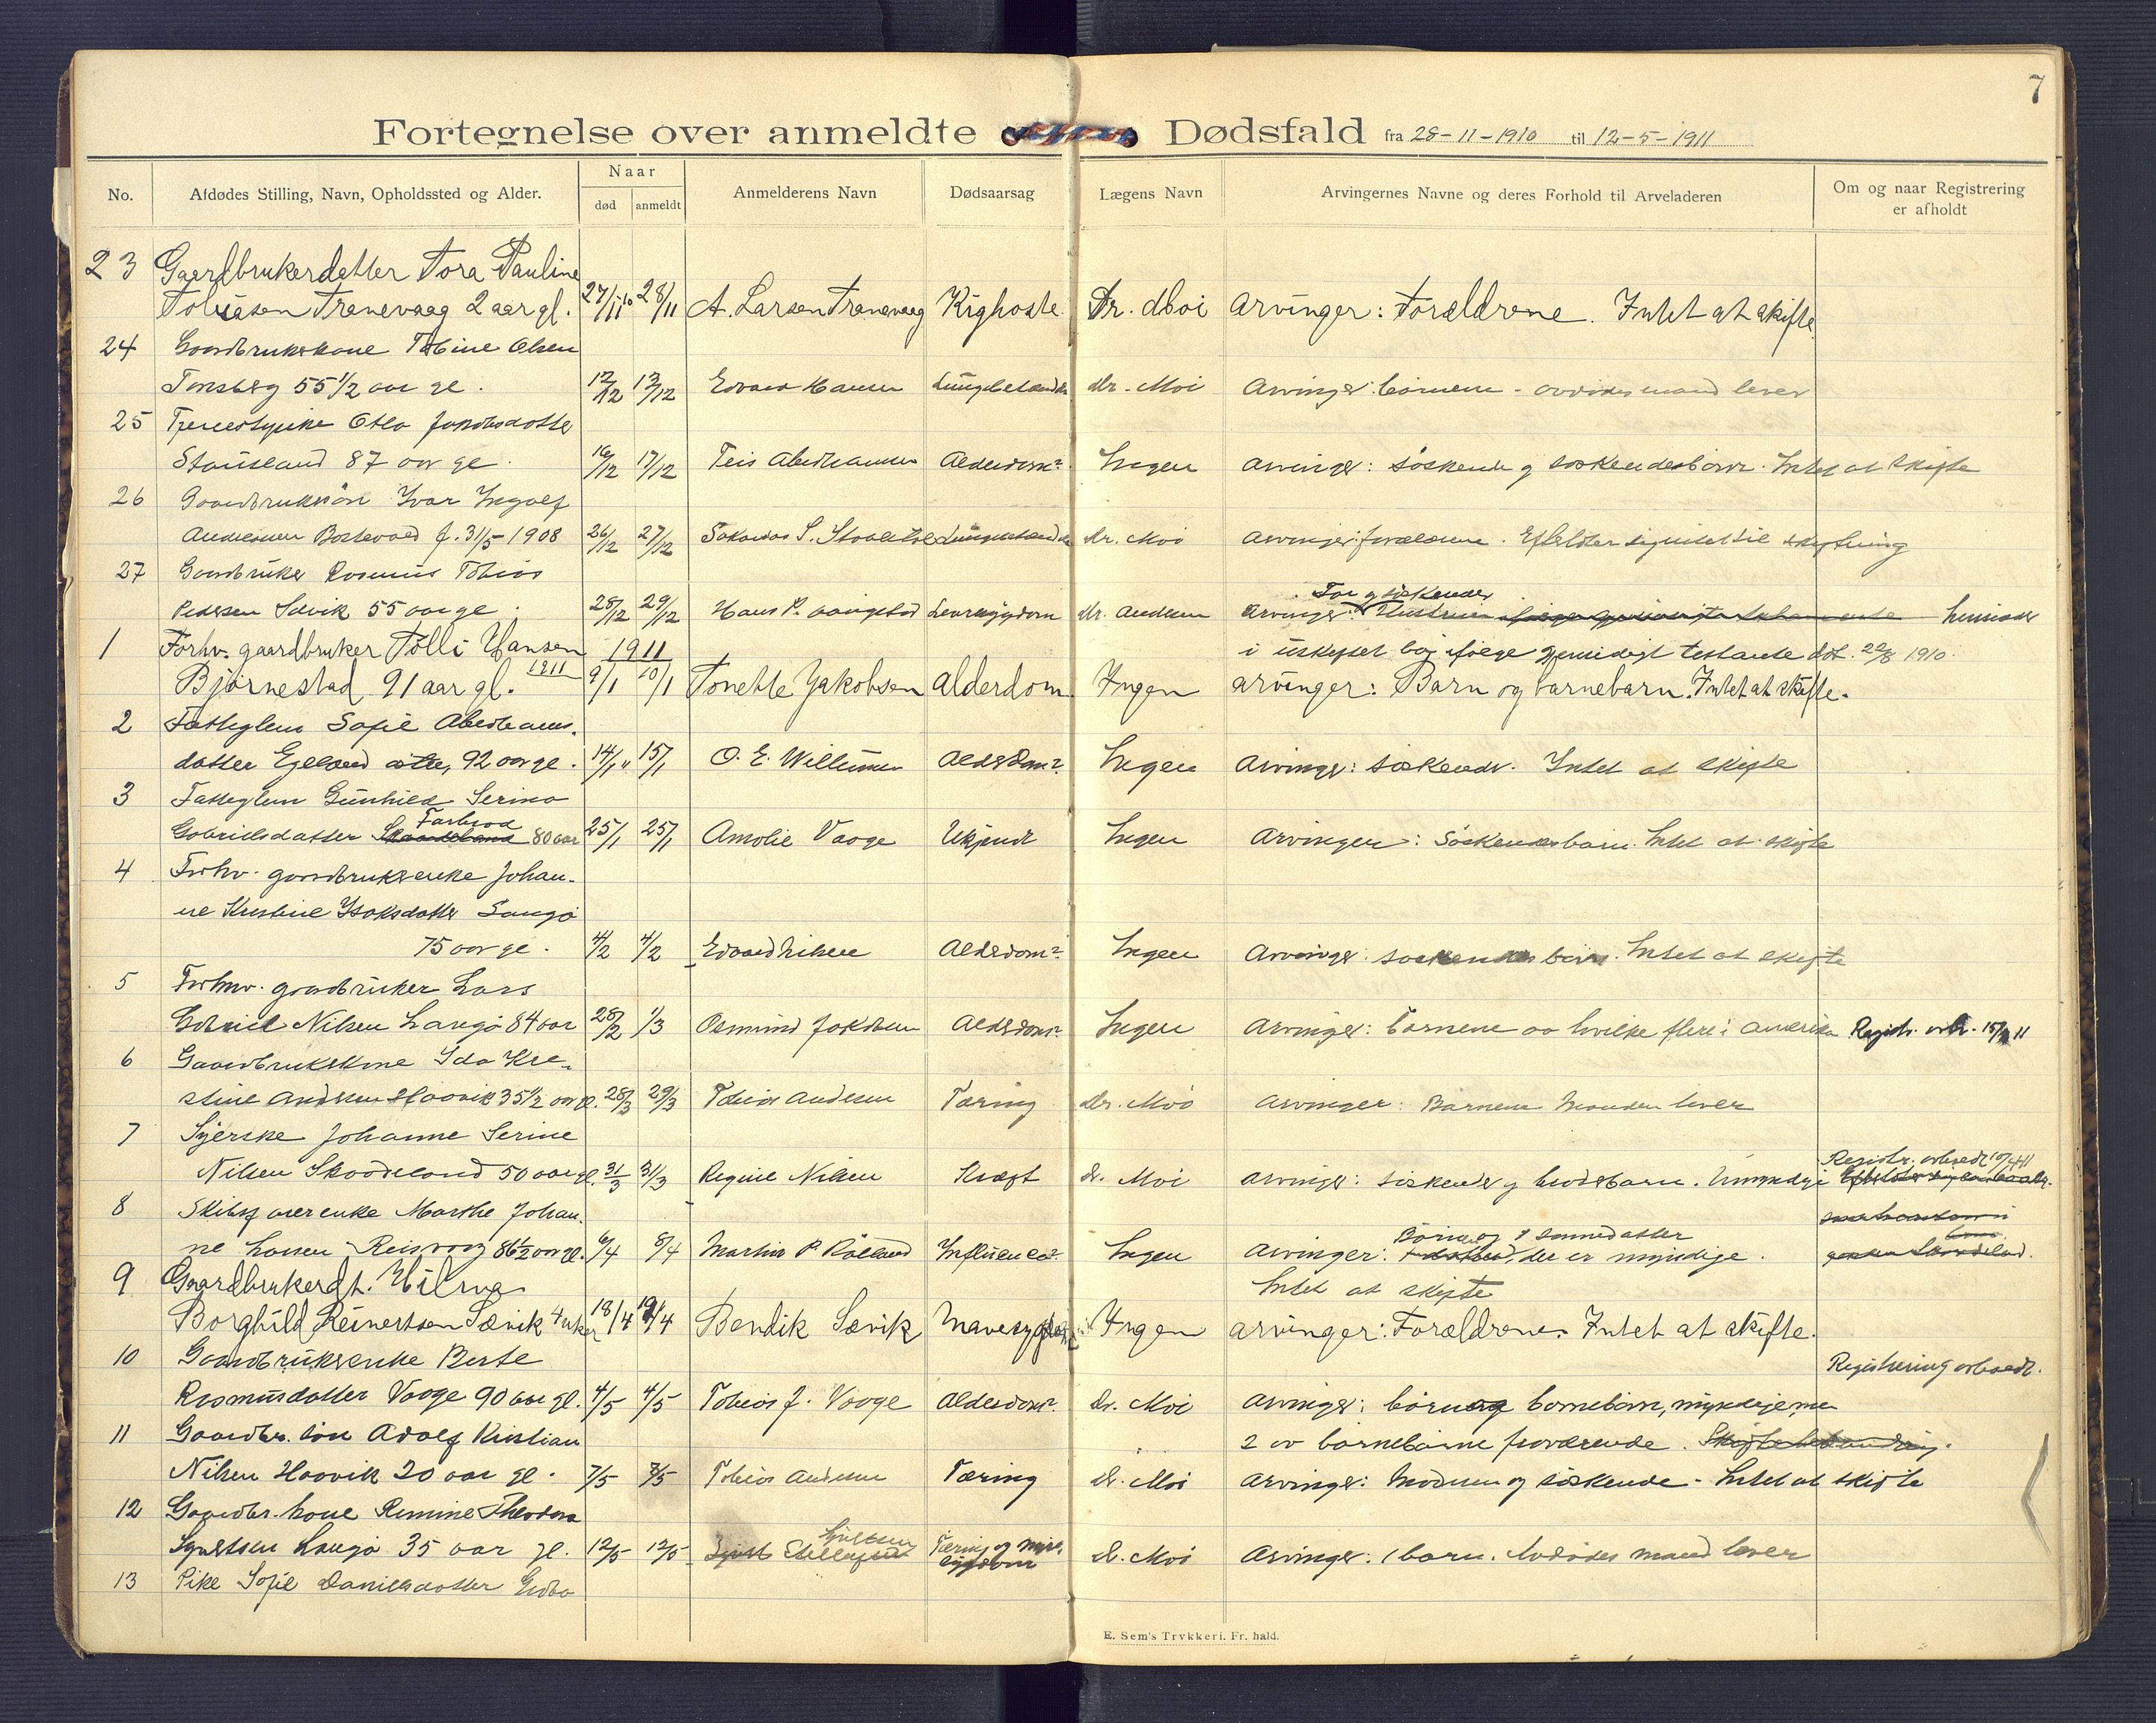 7
Fortegnelse over anmeldte Dødsfald fra 28-11-1910 til 12-5-1911
No. Afdødes Stilling, Navn, Opholdssted og Alder. Naar død anmeldt Anmelderens Navn Dødsaarsag Lægens Navn Arvingernes Navne og deres Forhold til Arveladeren Om og naar Registrering er afholdt
23 Gaardbrukerdatter Tora Pauline
Tobiasen Tranevaag 2 aar gl. 27/11 10 28/11 A. Larsen Tranevaag Kighoste Dr. Moi Arvinger: Forældrene. Intet at skifte
24 Gaardbrukerkone Tobine Olsen
Tonsberg 55 1/2 aar gl. 12/12 13/12 Edvard Hansen Lungebetændelse Dr. Moi Arvinger: børnene - avdødes mand lever
25 Tjenestepike Jakobsdatter
87 aar gl. 16/12 17/12 Teis Abrahamsen Alderdom Ingen Arvinger: søskende og søskendesbørn. Intet at skifte
26 Gaardbrukersøn Ivar Ingolf
Andersen f. 31/5-1908 26/12 27/12 Sakarias S. Dr. Moi Arvinger: forældrene.
27 Gaardbruker Rasmus Tobias
Pedersen Sævik 55 aar gl. 28/12 29/12 Hans P. Leversygdom Dr. Andersen Arvinger: Far og søskende
i uskiftet bo ifølge gjensidigt testamente dat. 22/8 1910.
1 Forhv. gaardbruker Tolli Hansen 1911
Bjørnestad 91 aar gl. 1911 9/1 10/1 Tonette Jakobsen Alderdom Ingen Arvinger: Barn og barnebarn. Intet at skifte.
2 Fattiglem Sofie Abrahams-
datter Egeland 92 aar gl. 14/1 15/1 O. E. Willumsen Alderdom Ingen Arvinger: søskende. Intet at skifte
3 Fattiglem Gunhild Serina
Gabrielsdatter Skaadeland Farbrod 80 aar 25/1 25/1 Amalie Vaage Ukjendt Ingen Arvinger: Søskendesbarn. Intet at skifte
4 Forhv. gaardbrukerenke Johan-
ne Kristine Isaksdatter Langø
75 aar gl. 4/2 4/2 Edvard Nilsen Alderdom Ingen Arvinger: søskendesbørn. Intet at skifte
5 Forhv. gaardbruker Lars
Gabriel Nilsen Langø 84 aar 28/2 1/3 Osmund Jakobsen Alderdom Ingen Arvinger: børnene av hvilke flere i Amerika
6 Gaardbrukerkone Ida Kri-
stine Andersen Haavik 35 1/2 aar gl. 28/3 29/3 Tobias Andersen Tæring Dr. Moi Arvinger: Børnene Manden lever
7 Syerske Johanne Serine
Nilsen Skaadeland 50 aar gl. 31/3 31/3 Regine Nilsen Kræft Dr. Moi Arvinger: søskende og brodersbarn.
8 enke Marthe Johan-
ne Larsen Reisvaag 86 1/2 aar gl. 6/4 8/4 Martin P. Influenca Ingen Arvinger: Børn og 1 sønnedatter, der er myndige.
Intet at skifte
9 Gaardbrukerdt. Hilma
Borghild Reinertsen Sævik 4 uker 18/4 19/4 Bendik Sævik Mavesygdom Ingen Arvinger: Forældrene. Intet at skifte.
10 Gaardbrukerenke Berte Registrering avhaedt.
Rasmusdatter Vaage 90 aar gl. 4/5 4/5 Tobias J. Vaage Alderdom Dr. Moi Arvinger: børn og barnebørn, myndige, men
2 av barnebørne fraværende. Skiftebehandling.
11 Gaardbr. søn Adolf Kristian
Nilsen Haavik 20 aar gl. 7/5 8/5 Tobias Andersen Tæring Dr. Moi Arvinger: Moderen og søskende - Intet at skifte
12 Gaardbr. kone Theodora
Langø 35 aar gl. 12/5 12/5 Tæring og sygdom Dr. Moi Arvinger: 1 barn. Avdødes mand lever
13 Pike Sofie Danielsdatter
E. Sem's Trykkeri. Fr. hald.